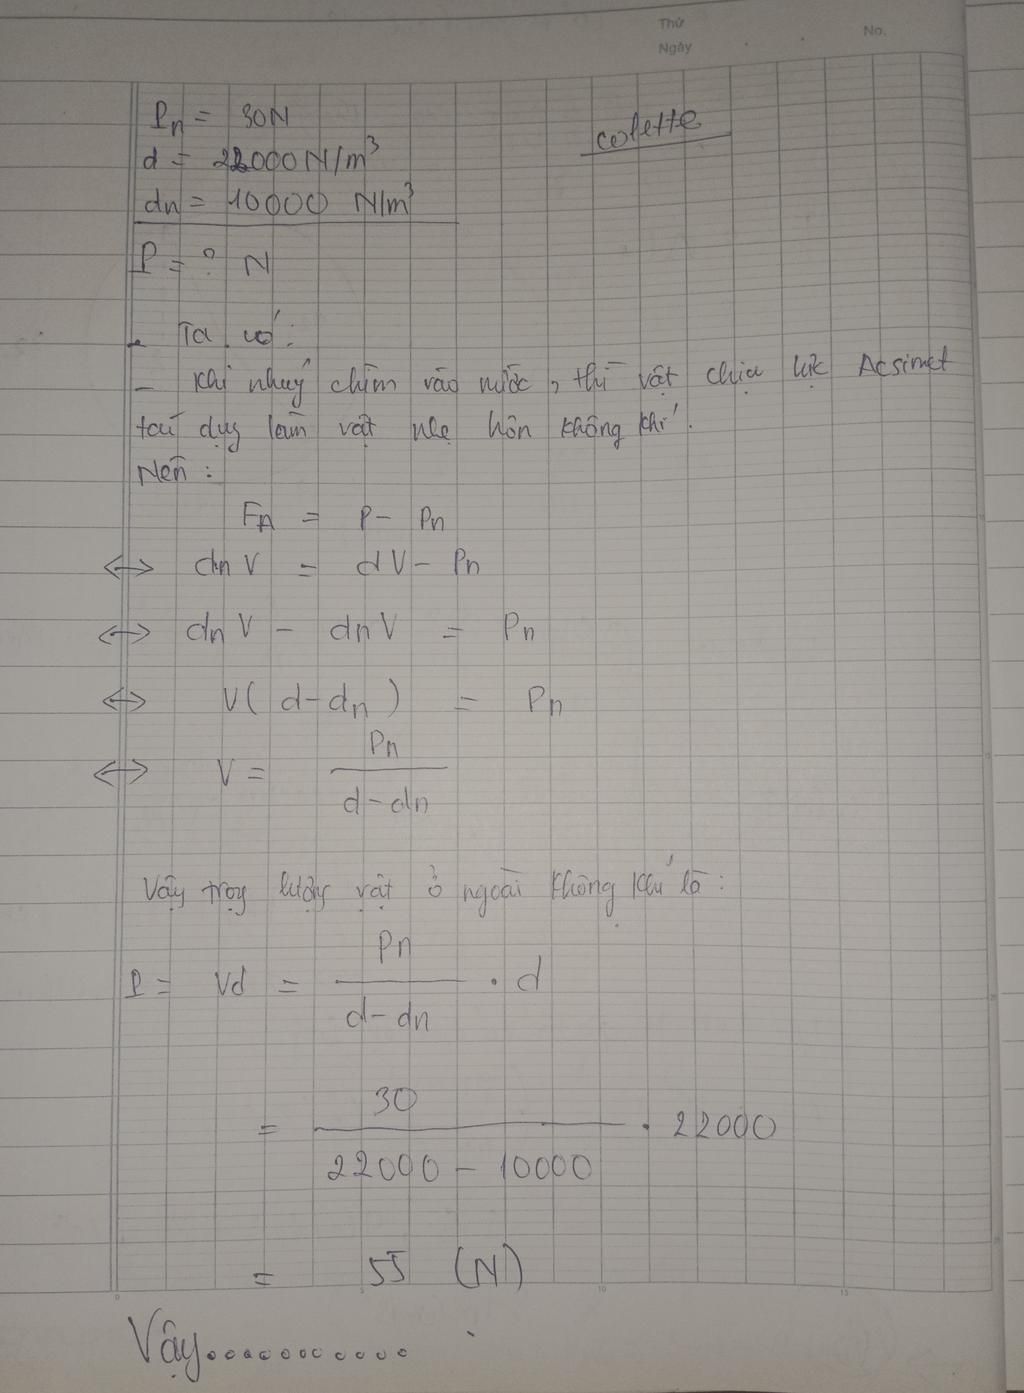 Thứ
Ngày
No.
Pn = 30N
colette
d = 22000N/m³
dn = 10000 N/m³
P = ? N
- Ta có:
- Khi nhúng chìm vào nước, thì vật chịu lực Acsimet
tác dụng làm vật nhẹ hơn không khí.
Nên:
FA = P - Pn
<-> dnV = dV - Pn
<-> dnV - dnV = Pn
<-> V( d-dn ) = Pn
<-> V = Pn / d-dn
Vậy trọng lượng vật ở ngoài không khí là:
P = Vd = Pn / d-dn . d
= 30 / 22000 - 10000 . 22000
= 55 (N)
Vậy...........